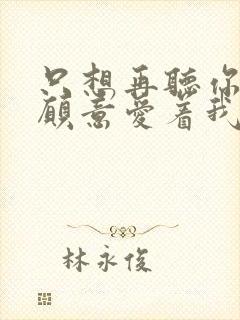 只想再聽你
願意愛着我
林永俊